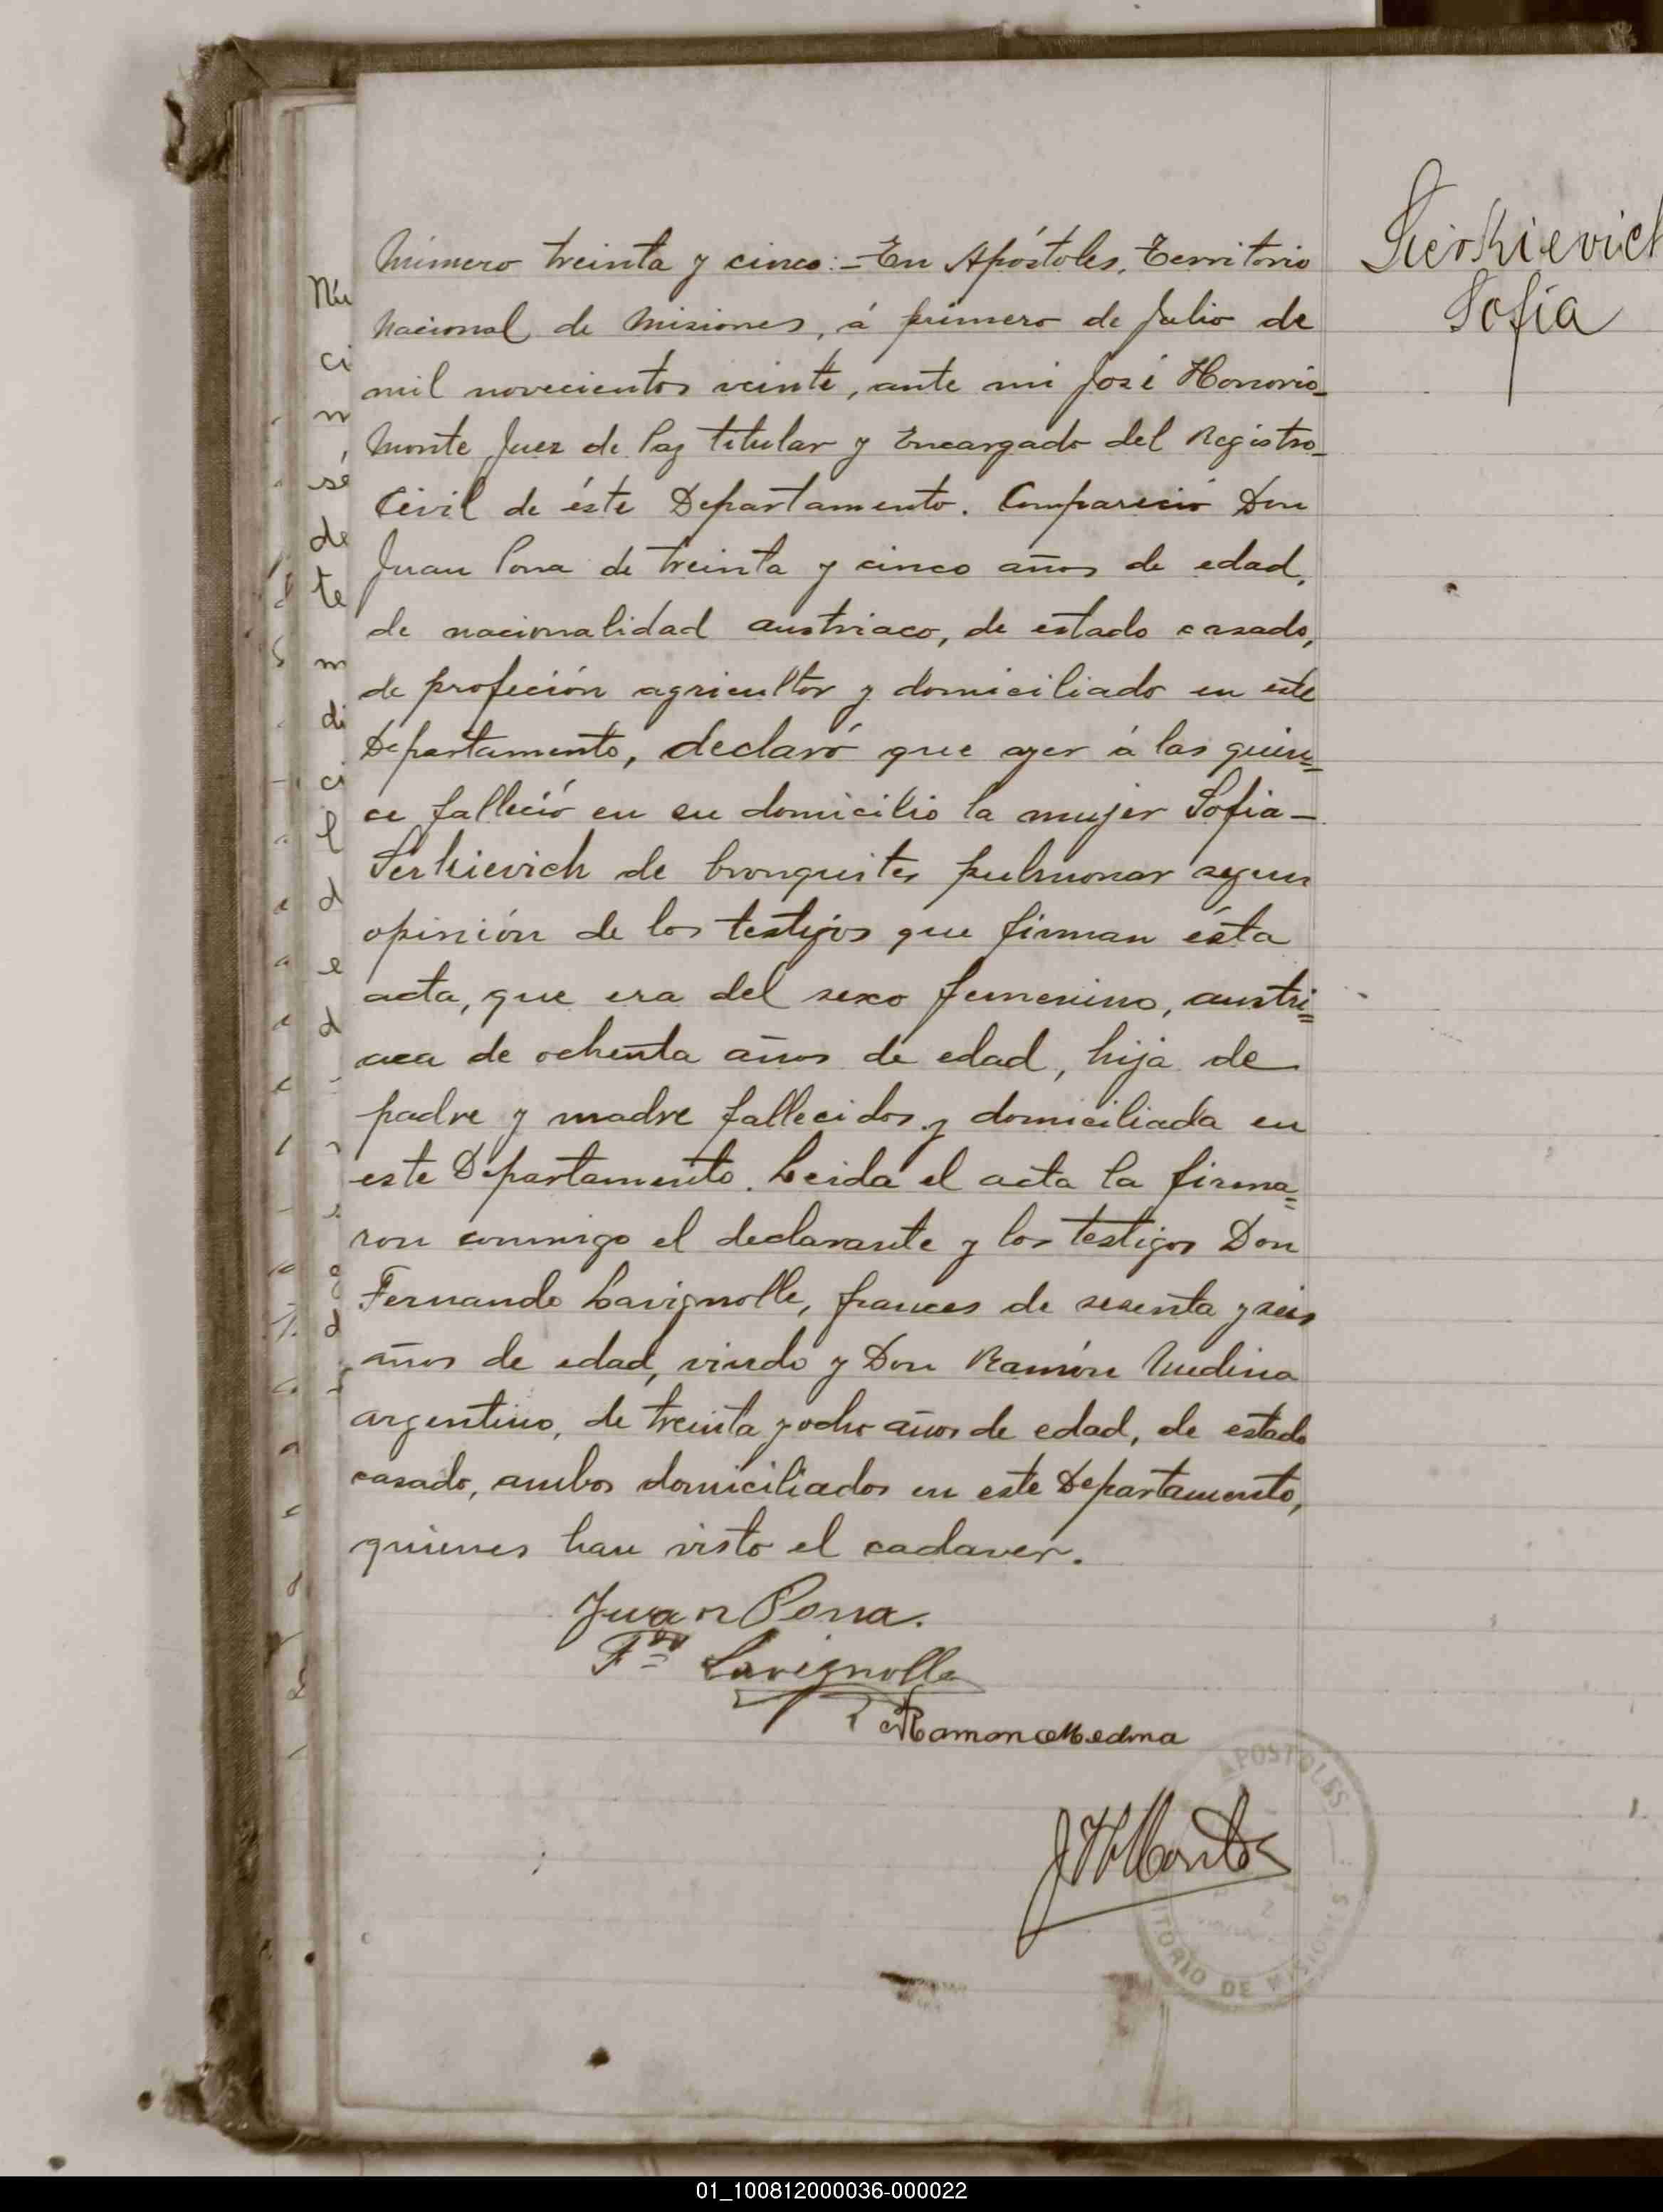 Número treinta y cinco:- En Apóstoles, Territorio
Nacional de Misiones, á primero de Julio de
mil novecientos veinte, ante mi José Honorio
Monte Juez de Paz titular y Encargado del Registro
Civil de éste Departamento. Compareció Don
Juan Pona de treinta y cinco años de edad,
de nacionalidad austriaco, de estado casado,
de profeción agricultor y domiciliado en este
Departamento, declaró que ayer á las quin=
ce falleció en su domicilio la mujer Sofia
Serkievich de bronquites pulmonar segun
opinión de los testigos que firman ésta
acta, que era del sexo femenino, austri=
aca de ochenta años de edad, hija de
padre y madre fallecidos y domiciliada en
este Departamento. Leida el acta la firma=
ron conmigo el declarante y los testigos Don
Fernando Lavignolle, frances de sesenta y seis
años de edad, viudo y Don Ramón Medina
argentino, de treinta y ocho años de edad, de estado
casado, ambos domiciliados en este Departamento,
quienes han visto el cadaver.
Juan Pona.
Fdo Lavignolle
Ramon Medina
JHMonte
APOSTOLES
ITORIO DE MISIONES
Sierkievich
Sofía
Nú
ci
n
sé
de
te
m
di
ci
l
d
e
d
01_100812000036-000022